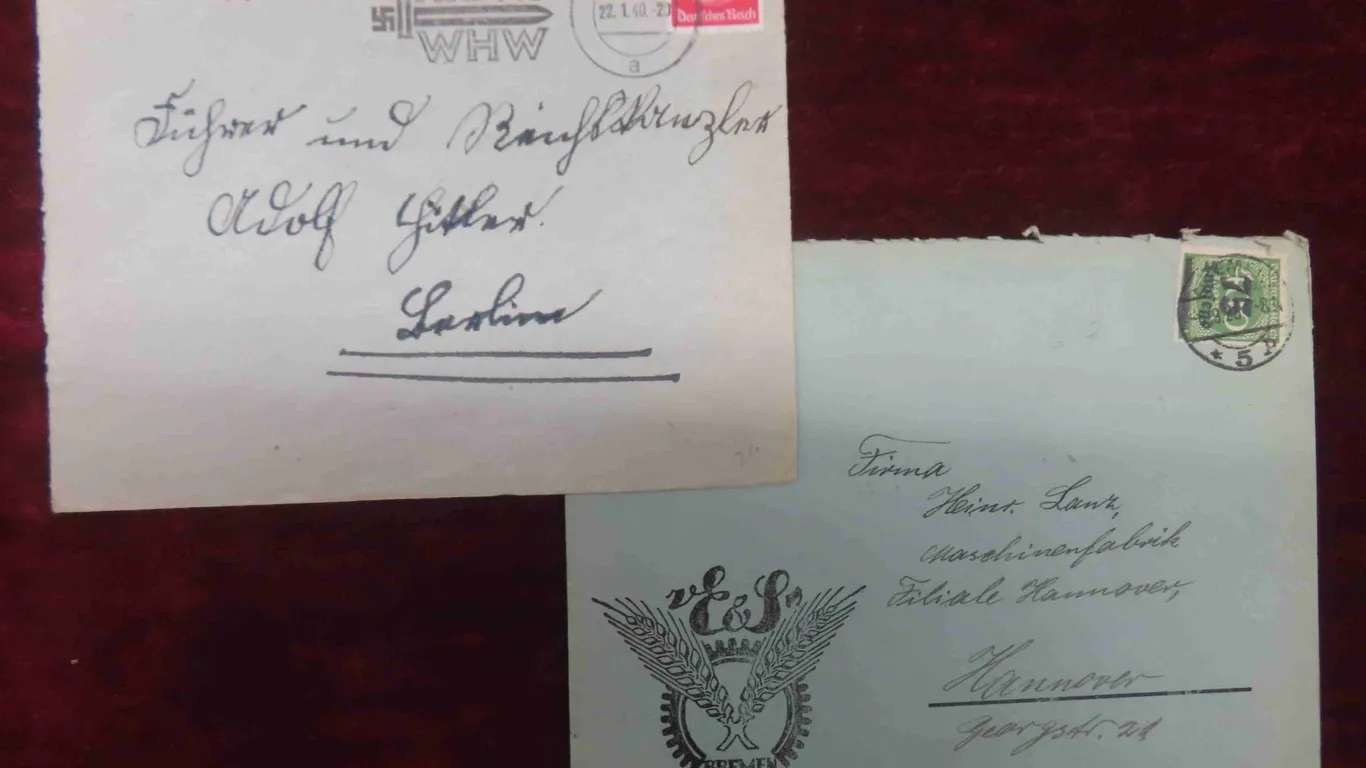 WHW
22.1.40.-20
a
Deutsches Reich
Führer und Reichskanzler
Adolf Hitler.
Berlin
75
* 5 A
Firma
Heinr. Lanz,
Maschinenfabrik
Filiale Hannover,
Hannover
Georgstr. 21
vE&Sn
BREMEN